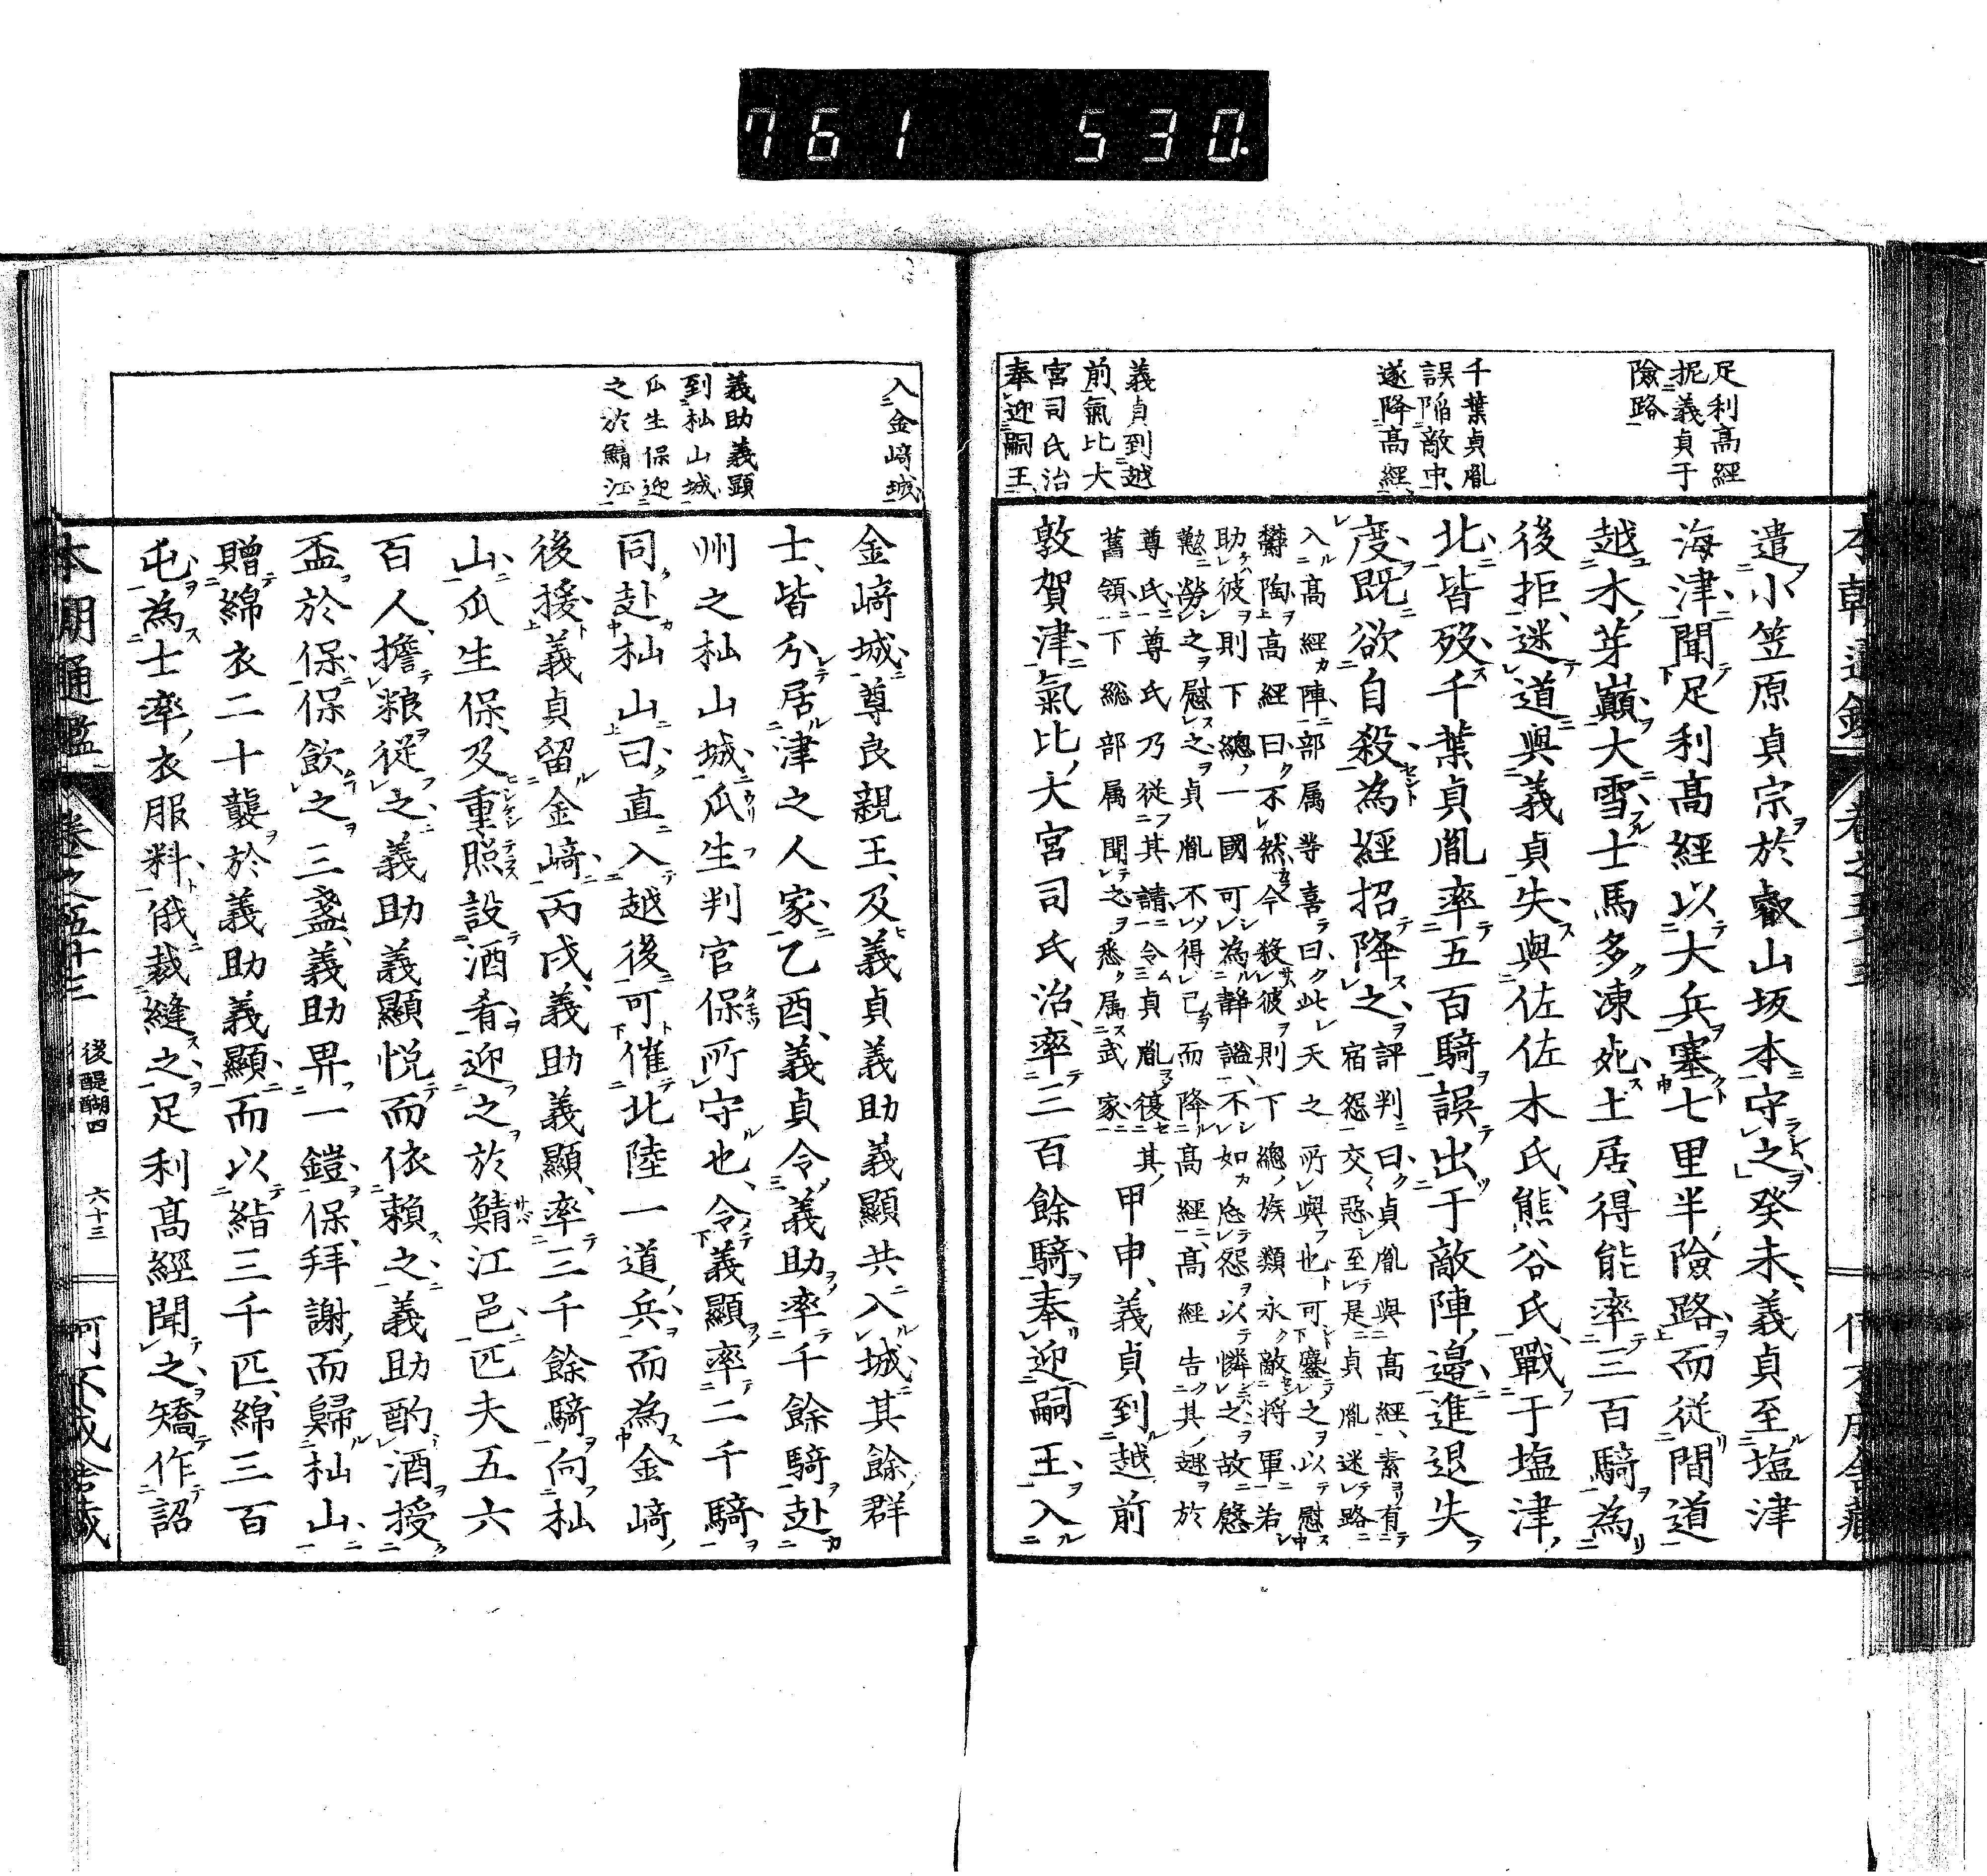 761 530.
足利高經
抳義貞于
險路
千葉貞胤
誤陥敵中、
遂降高經
義貞到越
前、氣比大
宮司氏治
奉迎嗣王、
遣小笠原貞宗於叡山坂本守之癸未、義貞至塩津
海津聞足利高經以大兵塞七里半險路而從間道
越木芽巓大雪士馬多凍死土居、得能率三百騎為
後拒、迷道與義貞失與佐佐木氏、熊谷氏、戰于塩津、
北皆歿千葉貞胤率五百騎誤出于敵陣邉進退失
度既欲自殺為經招降之評判曰貞胤與高經、素有
宿怨交惡至是貞胤迷路
入高經陣部属等喜曰此天之所與也可鏖之以慰
欝陶高經曰不然今殺彼則下總族類永敵将軍若
助彼則下總一國可為静謐、不如忘怨以憐之故慇
懃勞之慰之貞胤不得已而降高經高經告其趣於
尊氏尊氏乃従其請令貞胤復其
舊領下総部属聞之悉属武家
甲申、義貞到越前
敦賀津氣比大宮司氏治率三百餘騎奉迎嗣王入
本朝通鑑 卷之五十三
入金﨑城
義助義顕
到杣山城
瓜生保迎
之於鯖江
金﨑城尊良親王、及義貞義助義顯共入城其餘群
士、皆分居津之人家乙酉、義貞令義助率千餘騎赴
州之杣山城瓜生判官保所守也、令義顯率二千騎
同赴杣山曰直入越後可催北陸一道兵而為金﨑
後援義貞留金﨑丙戌、義助義顯、率三千餘騎向杣
山、瓜生保、及重照設酒肴迎之於鯖江邑匹夫五六
百人擔粮從之義助義顯悦而依賴之義助酌酒授
盃於保保飲之三盞、義助畀一鎧保拜謝而歸杣山
贈綿衣二十襲於義助義顯而以絹三千匹、綿三百
屯為士率衣服料俄裁縫之足利高經聞之矯作詔
本朝通鑑 卷之五十三 後醍醐四 六十三